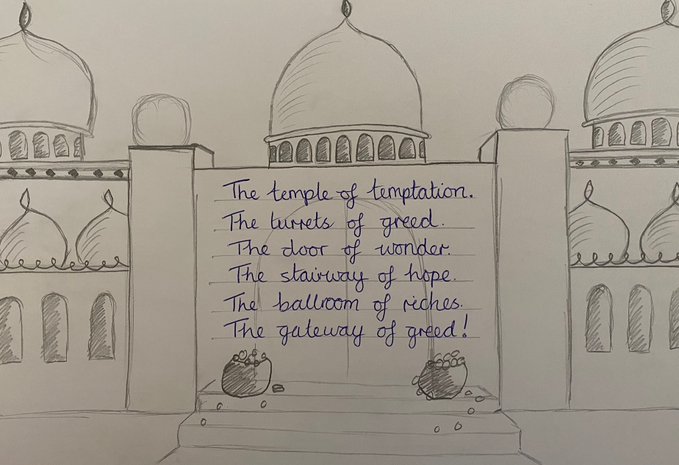 The temple of temptation.
The turrets of greed.
The door of wonder.
The stairway of hope.
The ballroom of riches.
The gateway of greed!